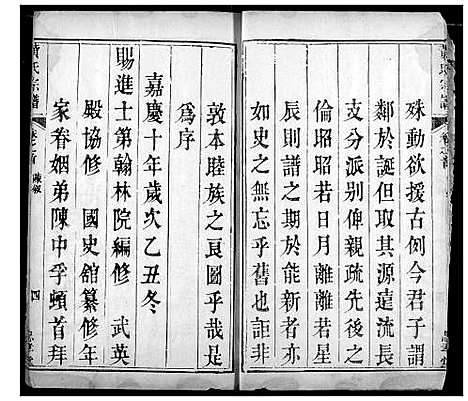 殊動欲援古例今君子謂
鄰於誕但其源遠流長
支分派别俾親疏先後之
倫昭昭若日月離離若星
辰則譜之期於新者亦
如史之無忘乎舊也詎非
敦本睦族之良圖乎哉是
為序
嘉慶十年歲次乙丑冬
賜進士第翰林院編修 武英
殿協修 國史舘纂修年
家眷姻弟陳中孚頓首拜
黄氏宗譜 卷之首 四